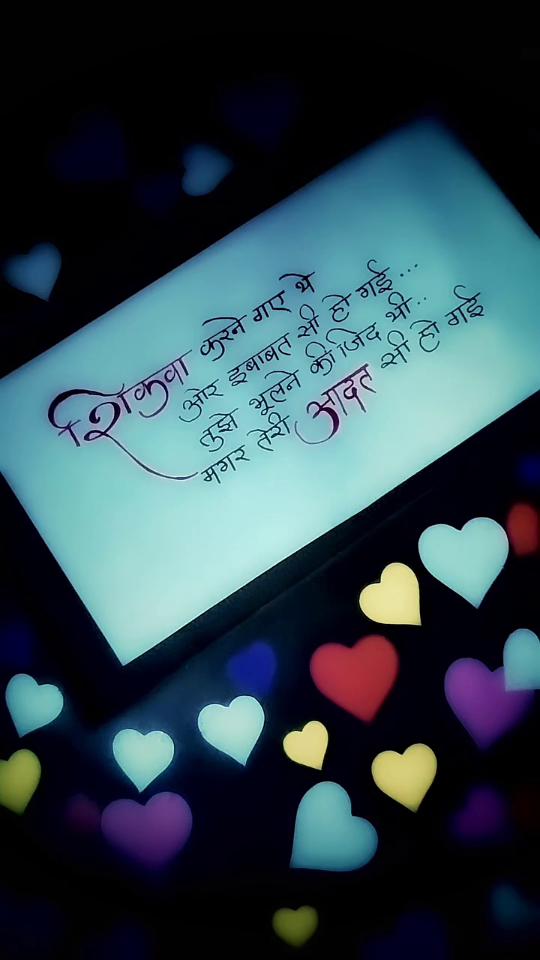 शिकवा करने गए थे
और इबाबत सी हो गई...
तुझे भूलने की जिद थी..
मगर तेरी आदत सी हो गई